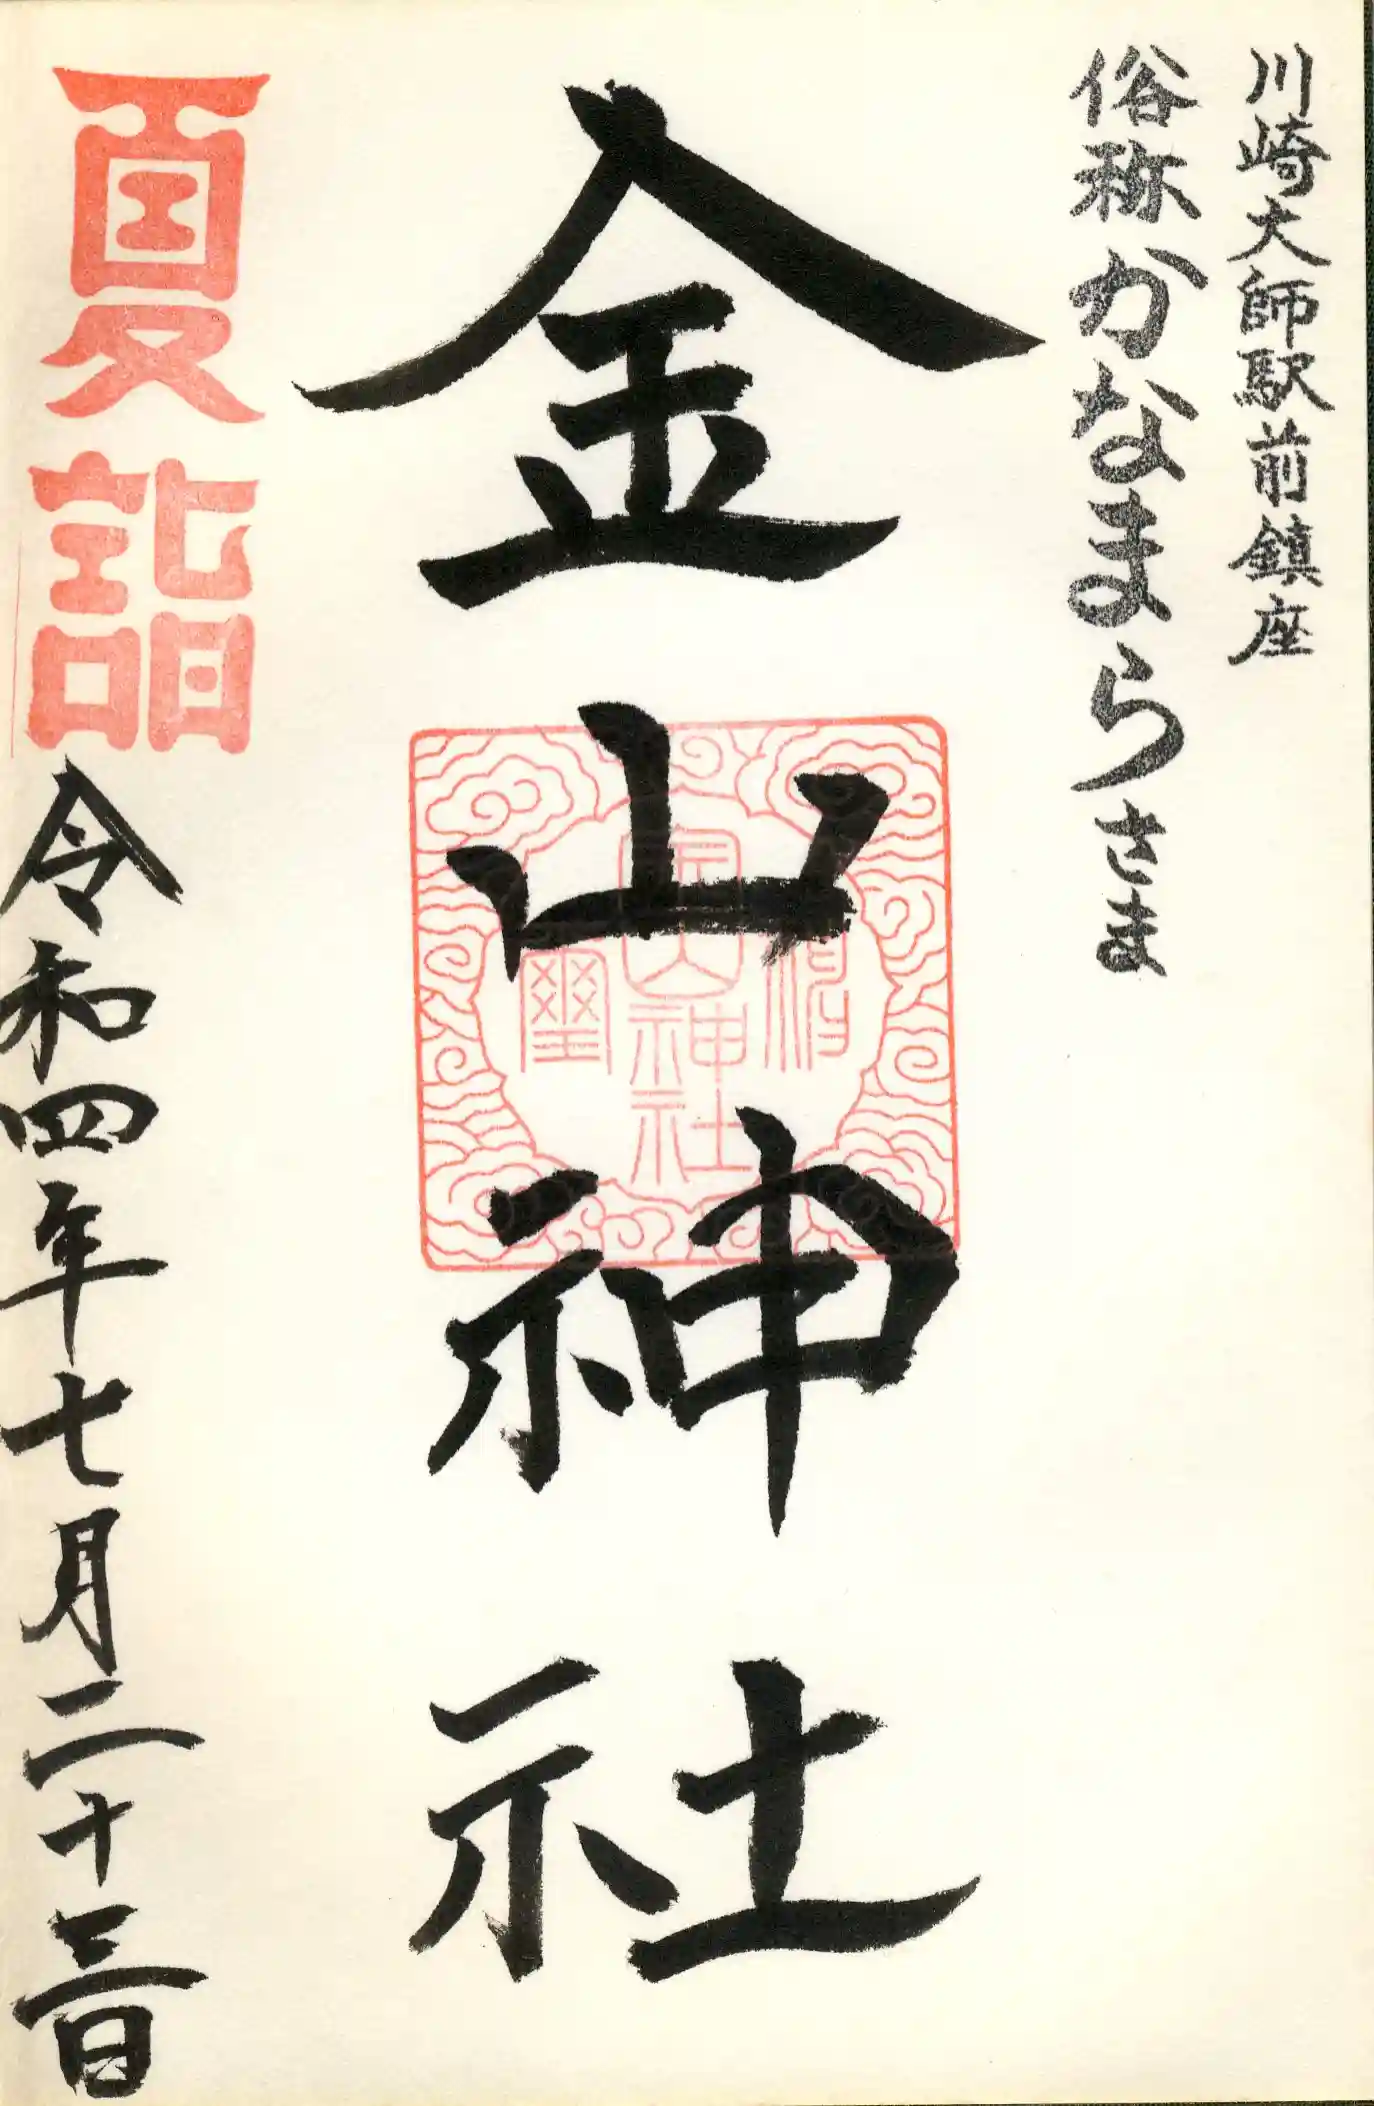 川崎大師駅前鎮座
俗称かなまらさま
金山神社
金山神社
夏詣
令和四年七月二十三日